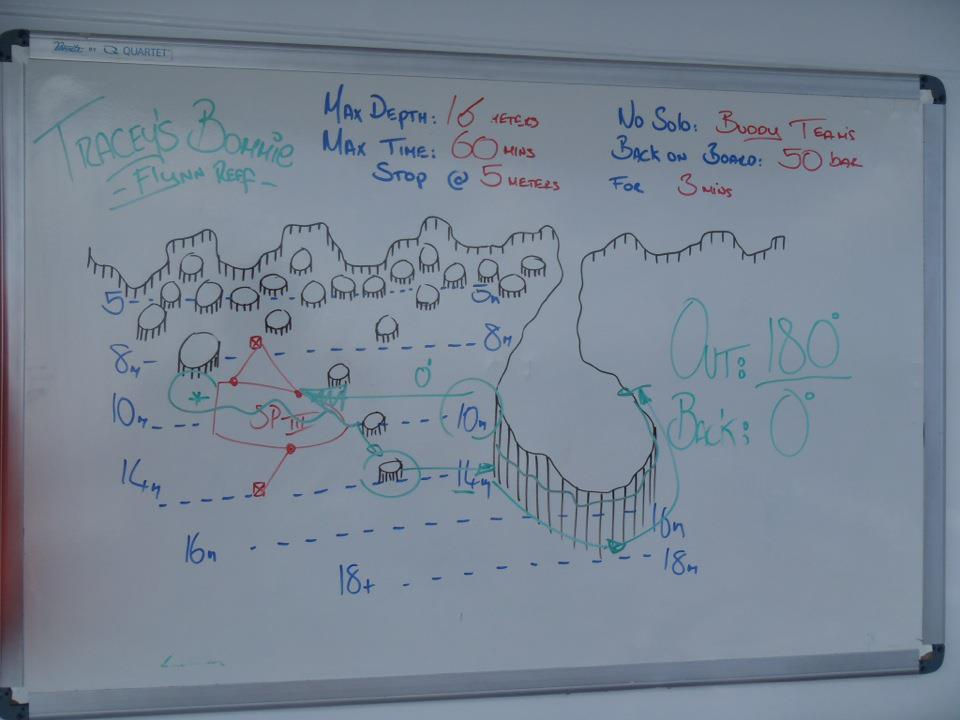 QUARTET
TRACEY'S BOMMIE
- FLYNN REEF -
MAX DEPTH: 16 METERS
MAX TIME: 60 MINS
STOP @ 5 METERS FOR 3 MINS
NO SOLO: BUDDY TEAMS
BACK ON BOARD: 50 BAR
5 5m
8m 8m
0°
10m 10m
SP III
14m 14m
16m 16m
18+ 18m
OUT: 180°
BACK: 0°